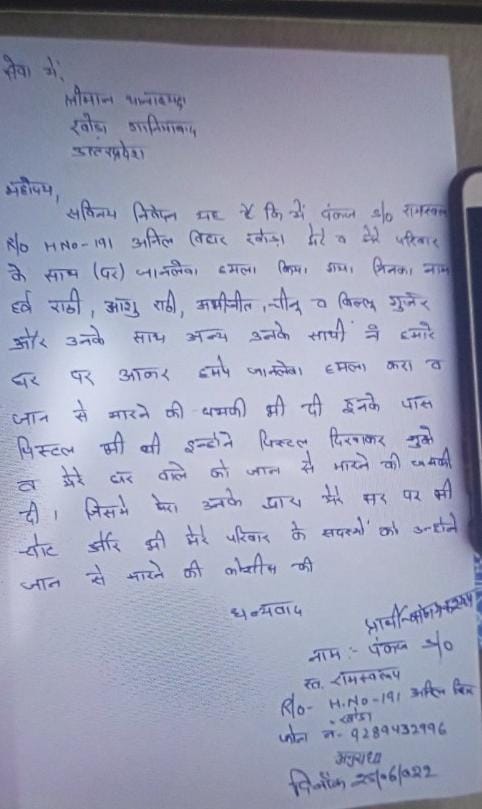 सेवा में,
श्रीमान थानाध्यक्ष
खोड़ा गाजियाबाद
उत्तरप्रदेश
महोदय,
सविनय निवेदन यह है कि मैं पंकज S/O रामस्वरूप
R/O H.NO-191 अनिल विहार खोड़ा मेरे व मेरे परिवार
के साथ (पर) जानलेवा हमला किया गया जिनका नाम
हर्ष राठी, आशु राठी, अभीजीत, चीनू व विल्लू गुर्जर
और उनके साथ अन्य उनके साथी ने हमारे
घर पर आकर हमपे जानलेवा हमला करा व
जान से मारने की धमकी भी दी इनके पास
पिस्टल भी थी इन्होने पिस्टल दिखाकर मुझे
व मेरे घर वाले को जान से मारने की धमकी
दी। जिसमे मेरा उनके द्वारा मेरे सर पर भी
चोट और भी मेरे परिवार के सदस्यों को उन्होने
जान से मारने की कोशीश की
धन्यवाद
प्रार्थी
नाम :- पंकज S/O
स्व. रामस्वरूप
R/O- H.NO-191 अनिल विहार
खोड़ा
फोन न.- 9289432996
अनुराधा
दिनाँक 25/06/022